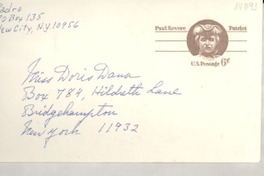 Pedro
PO Box 135
New City, N.Y 10956
Paul Revere Patriot
U.S. Postage 6¢
Miss Doris Dana
Box 784, Hildreth Lane
Bridgehampton
New York 11932